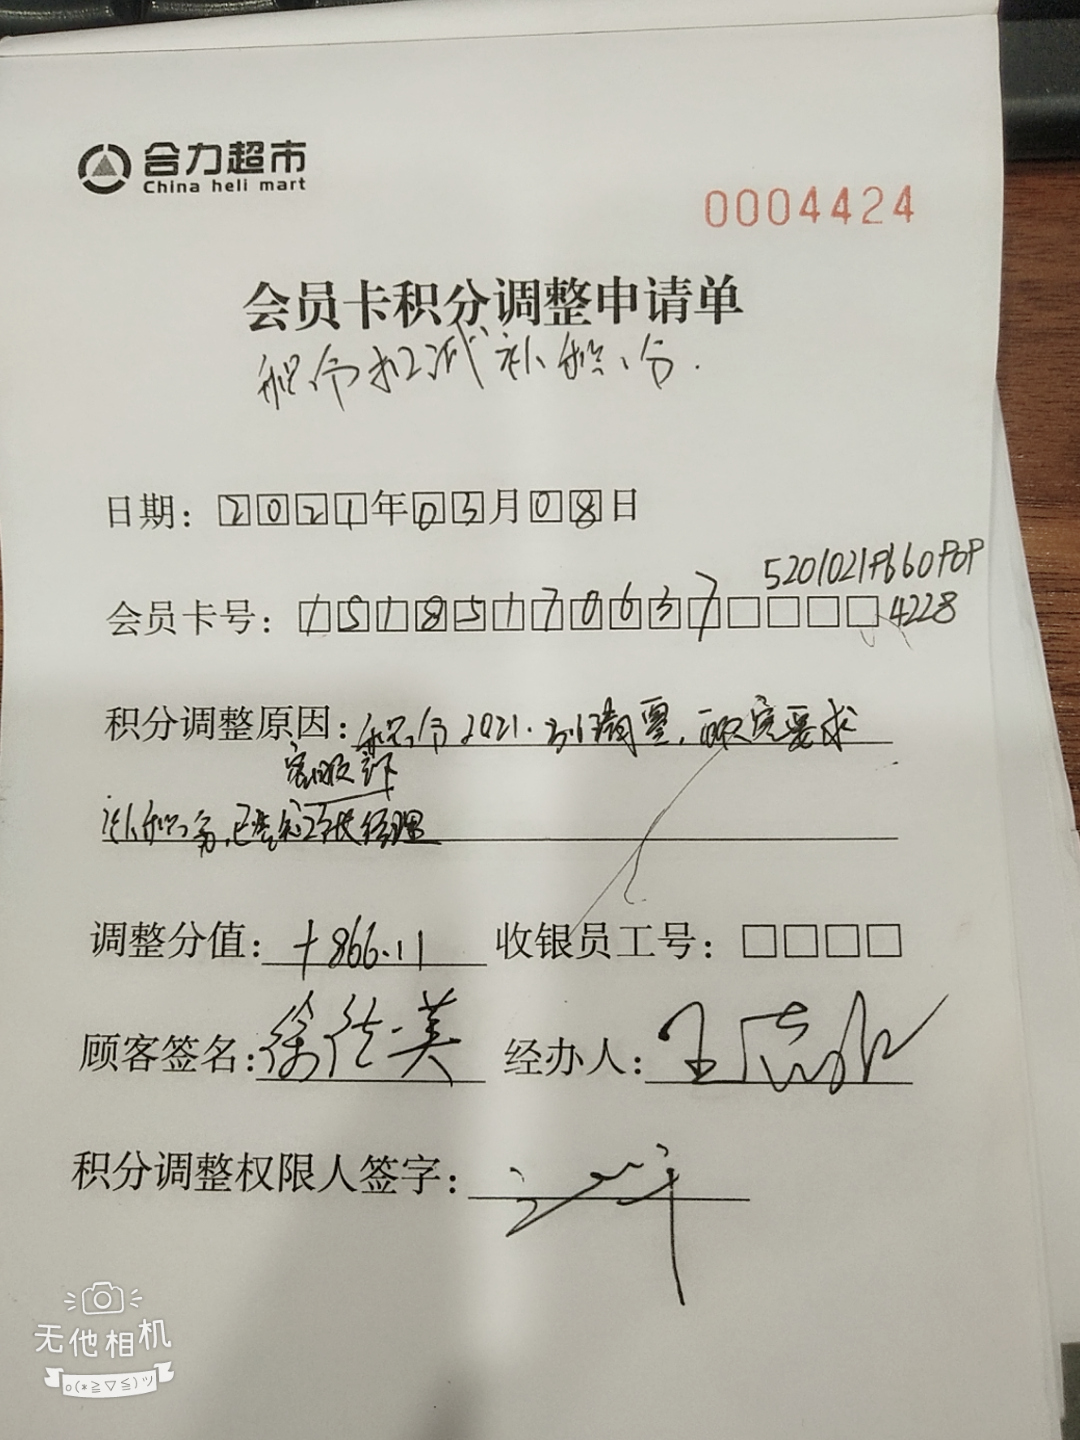 合力超市
China heli mart
0004424
会员卡积分调整申请单
积分扣减补积分.
日期：2021年03月08日
5201021P660POP
会员卡号：15185170637 4228
积分调整原因：积分2021. 要求
客服
补积分，已 经理
调整分值：+866.11 收银员工号：
顾客签名： 英 经办人：王
积分调整权限人签字：
无他相机
o(*≧▽≦)ツ